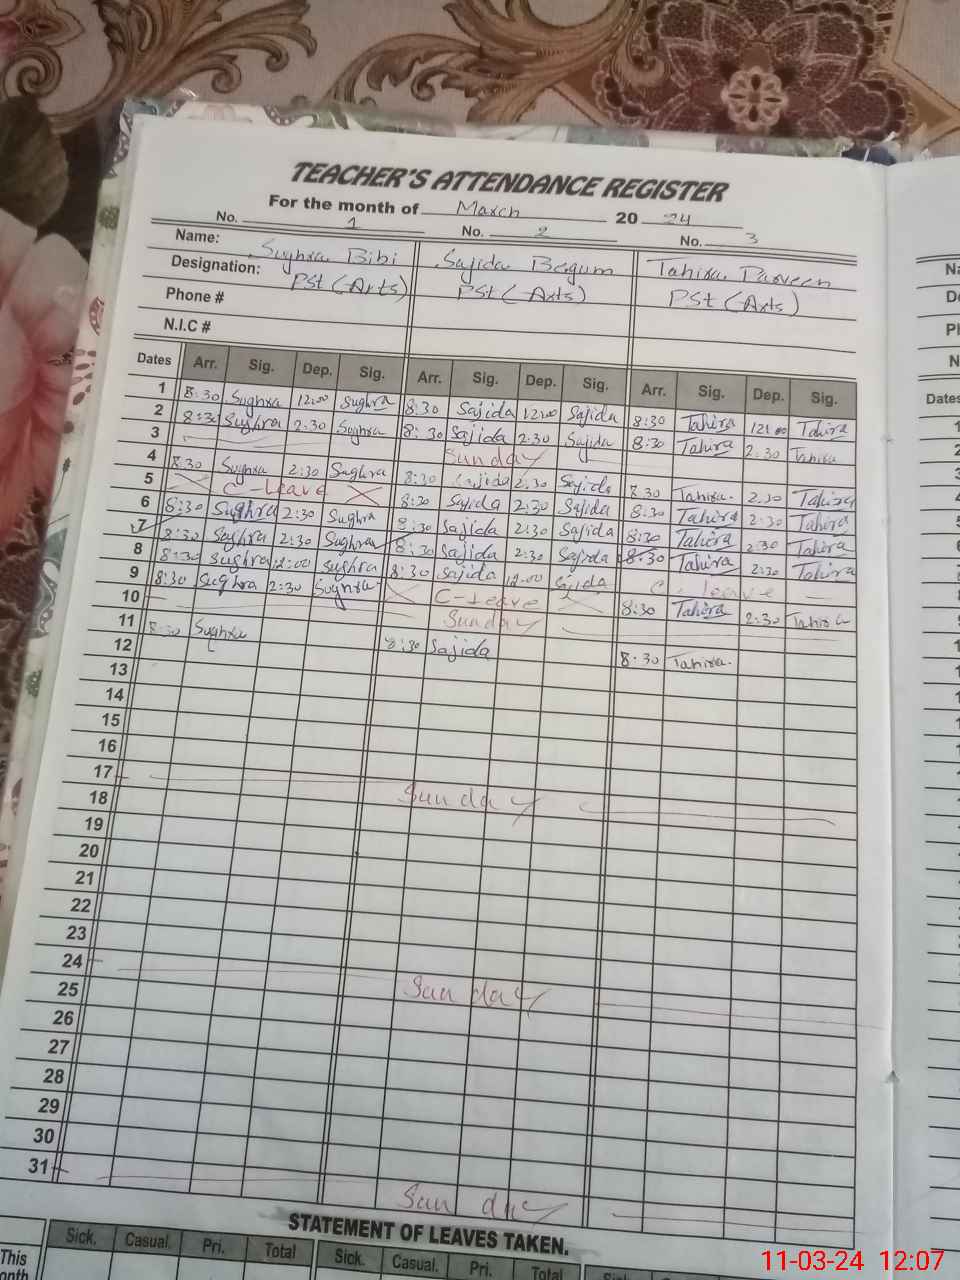 TEACHER'S ATTENDANCE REGISTER
For the month of March 2024
No. 1 No. 2 No. 3
Name: Sughra Bibi Sajida Begum Tahira Parveen
Designation: PSt (Arts) PSt (Arts) PSt (Arts)
Phone #
N.I.C #
Dates Arr. Sig. Dep. Sig. Arr. Sig. Dep. Sig. Arr. Sig. Dep. Sig.
1 8:30 Sughra 12:00 Sughra 8:30 Sajida 12:00 Sajida 8:30 Tahira 12:00 Tahira
2 8:30 Sughra 2:30 Sughra 8:30 Sajida 2:30 Sajida 8:30 Tahira 2:30 Tahira
3 Sunday
4 8:30 Sughra 2:30 Sughra 8:30 Sajida 2:30 Sajida 8:30 Tahira 2:30 Tahira
5 C-Leave 8:30 Sajida 2:30 Sajida 8:30 Tahira 2:30 Tahira
6 8:30 Sughra 2:30 Sughra 8:30 Sajida 2:30 Sajida 8:30 Tahira 2:30 Tahira
7 8:30 Sughra 2:30 Sughra 8:30 Sajida 2:30 Sajida 8:30 Tahira 2:30 Tahira
8 8:30 Sughra 12:00 Sughra 8:30 Sajida 12:00 Sajida C. Leave
9 8:30 Sughra 2:30 Sughra C-Leave 8:30 Tahira 2:30 Tahira
10 Sunday
11 8:30 Sughra 8:30 Sajida 8:30 Tahira
12
13
14
15
16
17 Sunday
18
19
20
21
22
23
24 Sunday
25
26
27
28
29
30
31 Sunday
STATEMENT OF LEAVES TAKEN.
Sick. Casual. Pri. Total Sick. Casual. Pri. Total
This
11-03-24 12:07